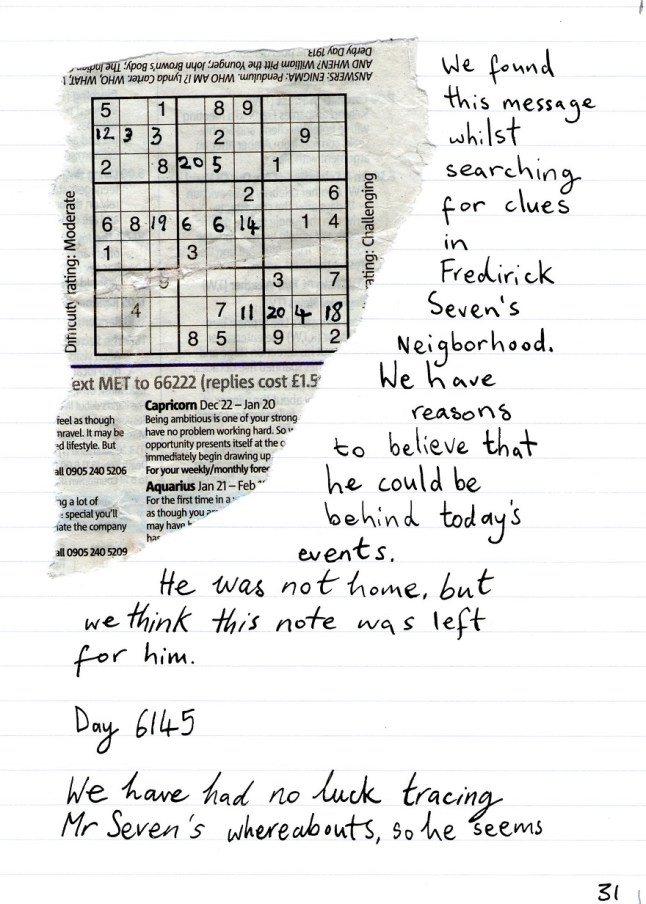 ANSWERS: ENIGMA: Pendulum. WHO AM I? Lynda Carter. WHO, WHAT,
AND WHEN? William Pitt the Younger; John Brown's Body; The
Derby Day 1913
Difficulty rating: Moderate
ating: Challenging
5 1 8 9
12 3 3 2 9
2 8 20 5 1
2 6
6 8 19 6 6 14 1 4
1 3
9 3 7
4 7 11 20 4 18
8 5 9 2
ext MET to 66222 (replies cost £1.5
feel as though
nravel. It may be
ed lifestyle. But
all 0905 240 5206
ng a lot of
special you'll
iate the company
all 0905 240 5209
Capricorn Dec 22 – Jan 20
Being ambitious is one of your strong
have no problem working hard. So
opportunity presents itself at the
immediately begin drawing up
For your weekly/monthly forec
Aquarius Jan 21 – Feb
For the first time in a
as though you
may have
We found
this message
whilst
searching
for clues
in
Fredirick
Seven's
Neigborhood.
We have
reasons
to believe that
he could be
behind today's
events.
He was not home, but
we think this note was left
for him.
Day 6145
We have had no luck tracing
Mr Seven's whereabouts, so he seems
31